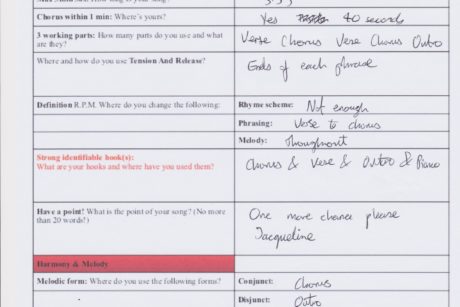 Chorus within 1 min: Where's yours? Yes 40 seconds
3 working parts: How many parts do you use and what are they? Verse Chorus Verse Chorus Outro
Where and how do you use Tension And Release? Ends of each phrase
Definition R.P.M. Where do you change the following: Rhyme scheme: Not enough
Phrasing: Verse to chorus
Melody: Throughout
Strong identifiable hook(s):
What are your hooks and where have you used them? Chorus & Verse & Outro & Piano
Have a point! What is the point of your song? (No more than 20 words!) One more chance please
Jacqueline
Harmony & Melody
Melodic form: Where do you use the following forms? Conjunct: Chorus
Disjunct: Outro